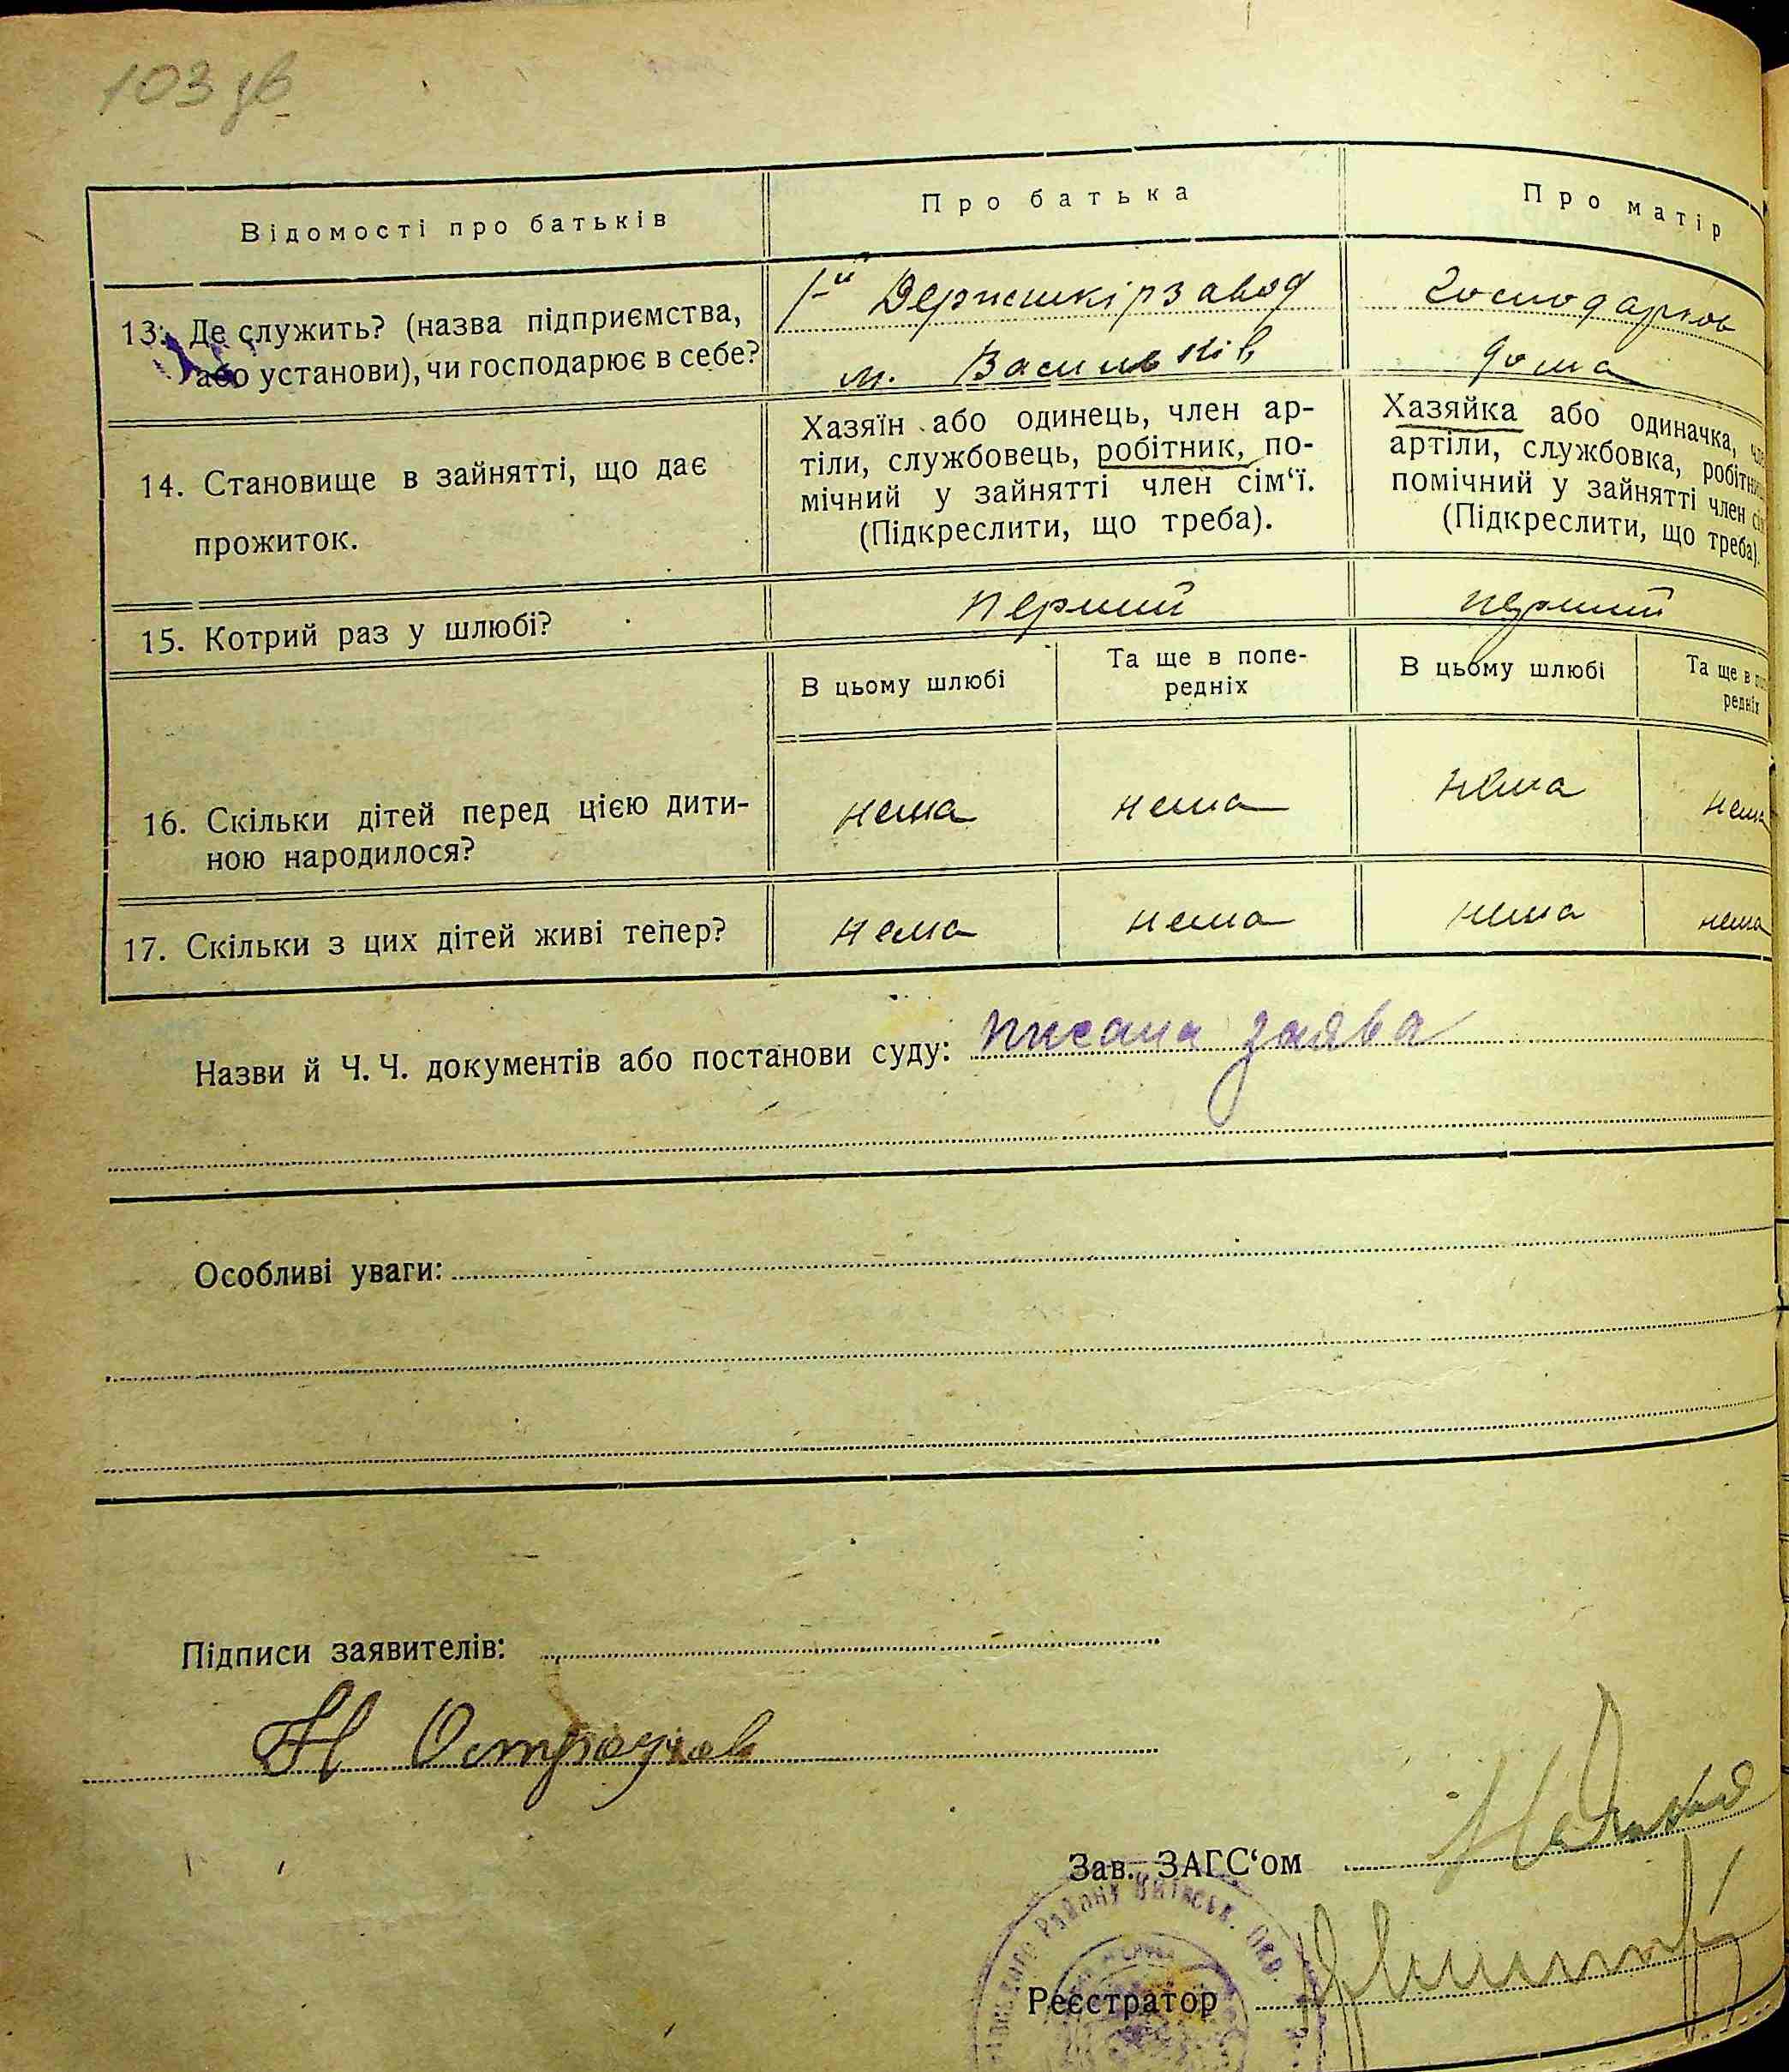 103 зв
Відомості про батьків
Про батька
Про матір
13. Де служить? (назва підприємства,
або установи), чи господарює в себе?
1-й Держшкірзавод
м. Васильків
господарює
дома
14. Становище в зайнятті, що дає
прожиток.
Хазяїн або одинець, член ар-
тіли, службовець, робітник, по-
мічний у зайнятті член сім‘ї.
(Підкреслити, що треба).
Хазяйка або одиначка,
артіли, службовка,
помічний у зайнятті член
(Підкреслити, що треба).
15. Котрий раз у шлюбі?
перший
перший
В цьому шлюбі
Та ще в попе-
редніх
В цьому шлюбі
Та ще в
редніх
16. Скільки дітей перед цією дити-
ною народилося?
нема
нема
нема
нема
17. Скільки з цих дітей живі тепер?
нема
нема
нема
нема
Назви й Ч. Ч. документів або постанови суду: писана заява
Особливі уваги:
Підписи заявителів:
Зав. ЗАГС‘ом
Району Київськ. Окр.
Реєстратор